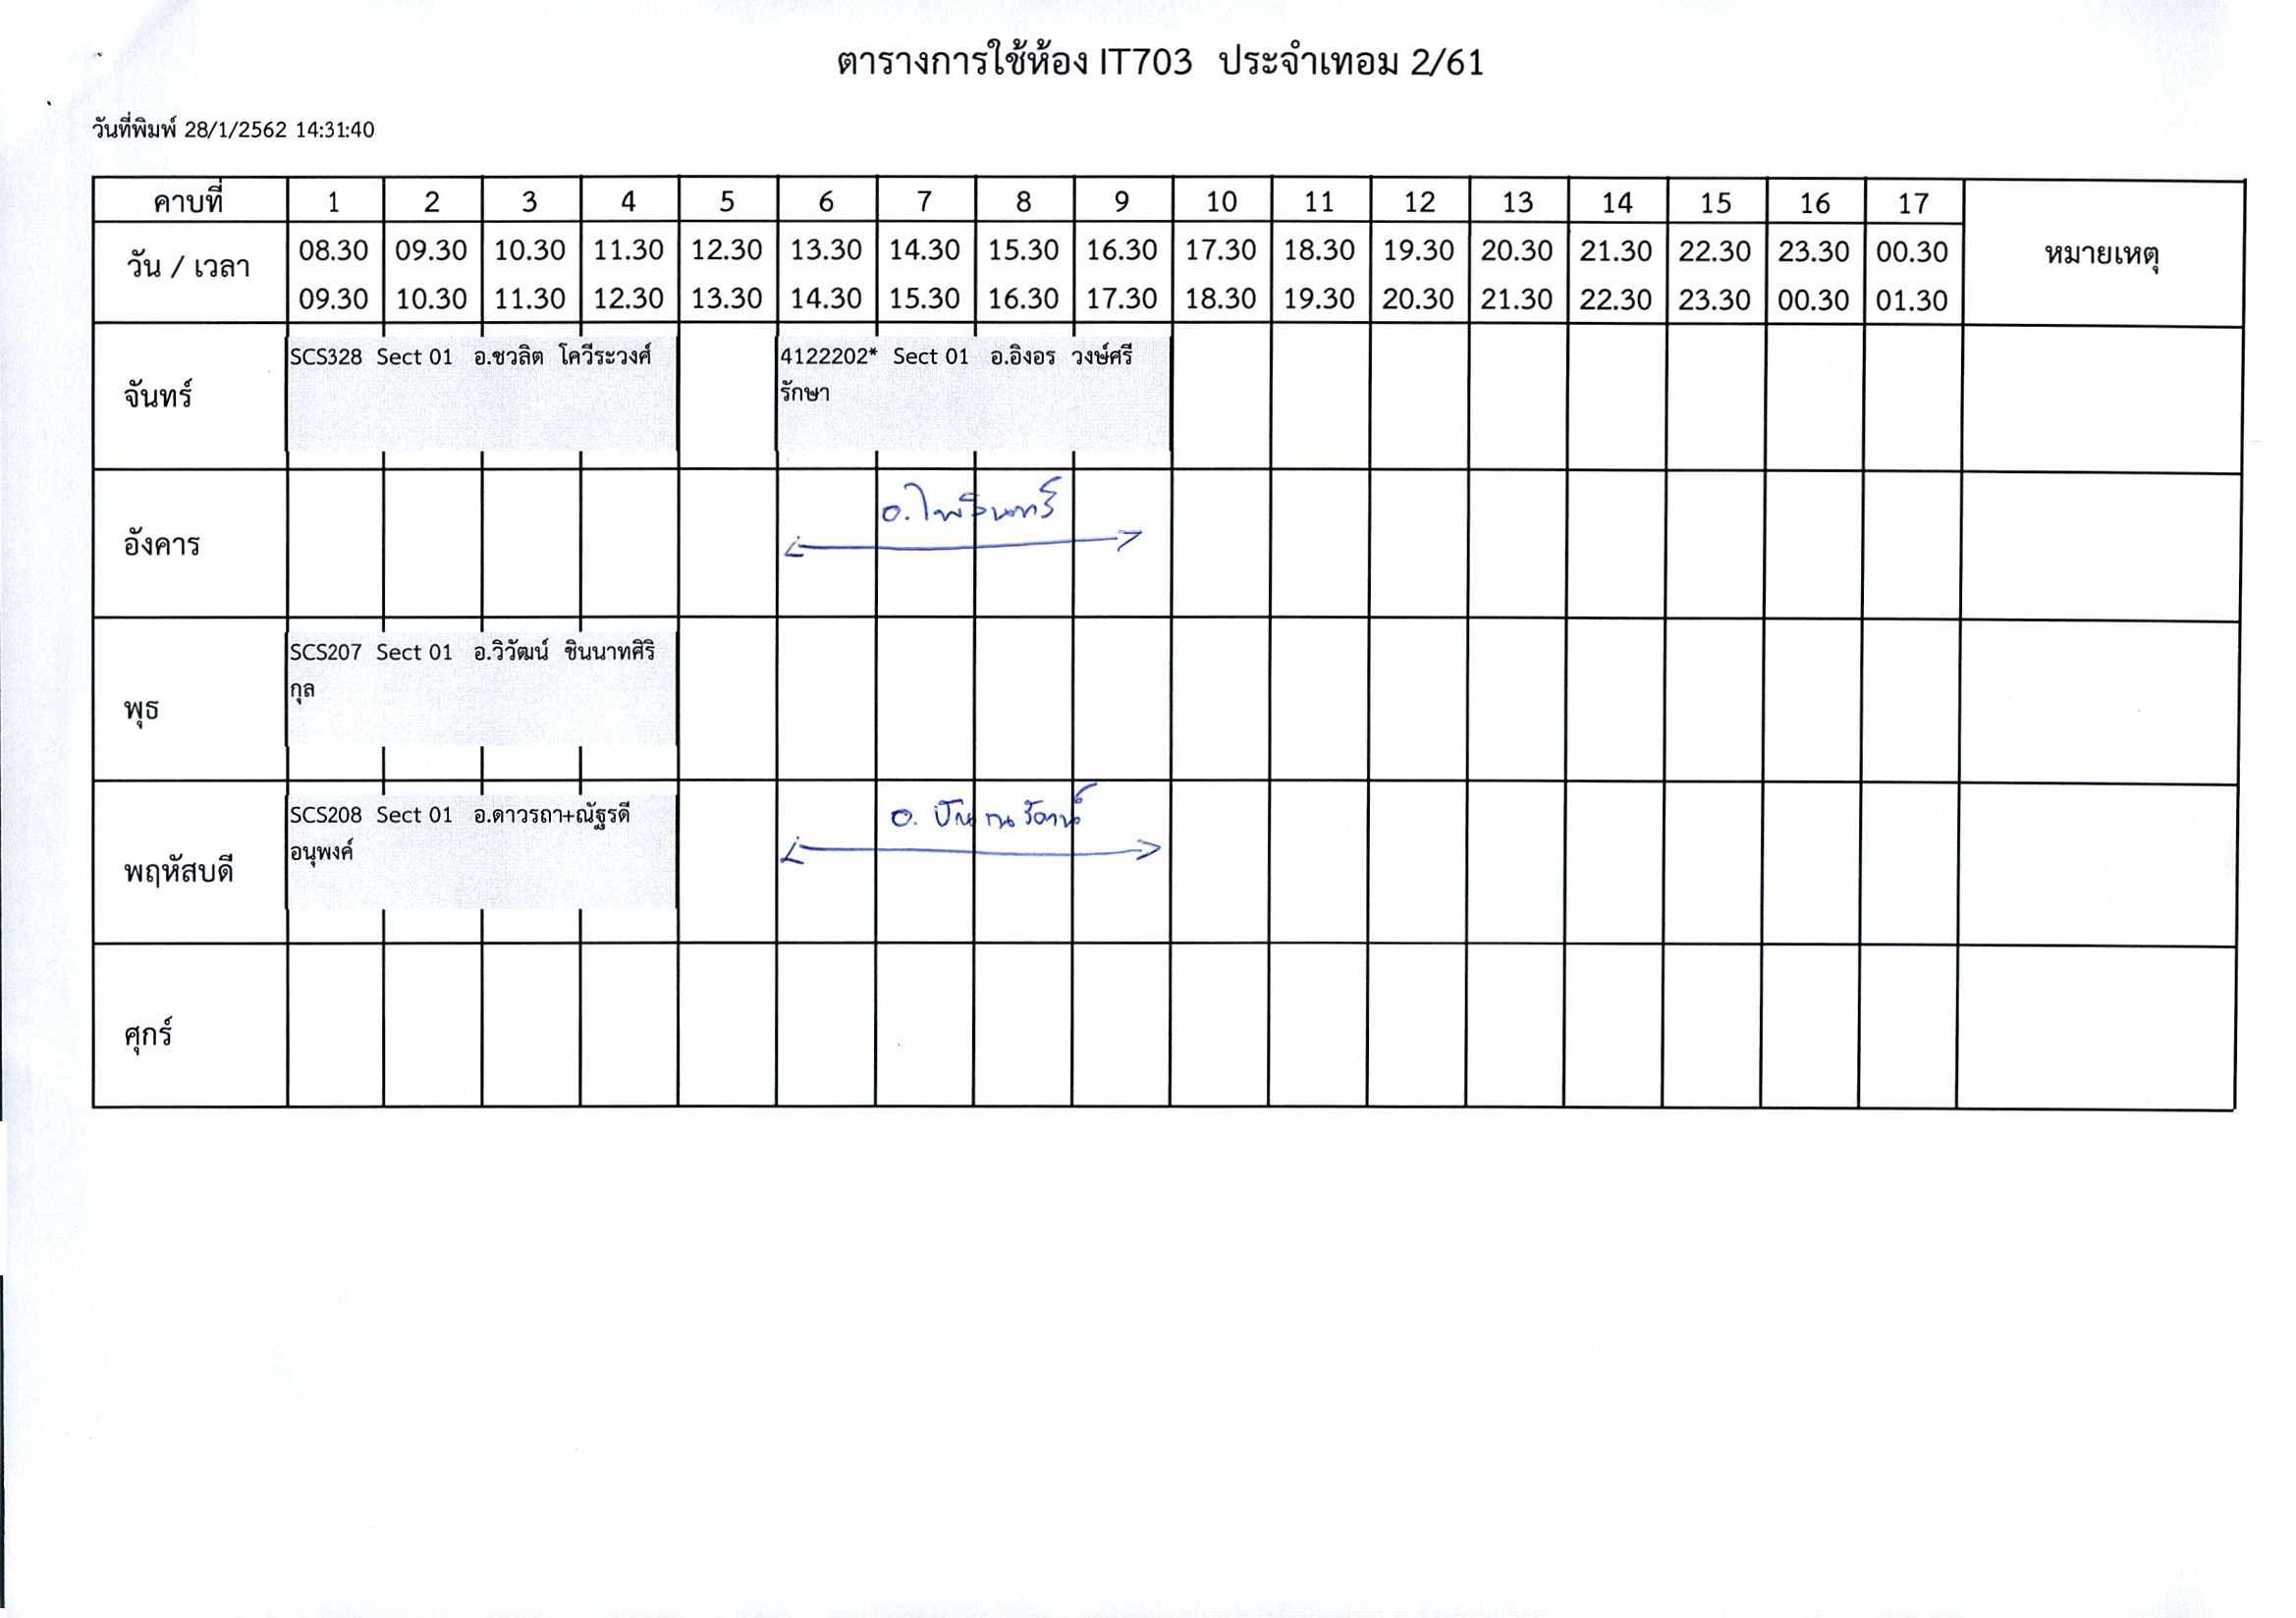 ตารางการใช้ห้อง IT703 ประจำเทอม 2/61
วันที่พิมพ์ 28/1/2562 14:31:40
คาบที่ 1 2 3 4 5 6 7 8 9 10 11 12 13 14 15 16 17
วัน / เวลา หมายเหตุ
08.30 09.30 10.30 11.30 12.30 13.30 14.30 15.30 16.30 17.30 18.30 19.30 20.30 21.30 22.30 23.30 00.30
09.30 10.30 11.30 12.30 13.30 14.30 15.30 16.30 17.30 18.30 19.30 20.30 21.30 22.30 23.30 00.30 01.30
จันทร์
SCS328 Sect 01 อ.ชวลิต โควีระวงศ์
4122202* Sect 01 อ.อิงอร วงษ์ศรี
รักษา
อังคาร
อ.ไพรินทร์
พุธ
SCS207 Sect 01 อ.วิวัฒน์ ชินนาทศิริ
กุล
พฤหัสบดี
SCS208 Sect 01 อ.ดาวรถา+ณัฐรดี
อนุพงค์
อ.
ศุกร์